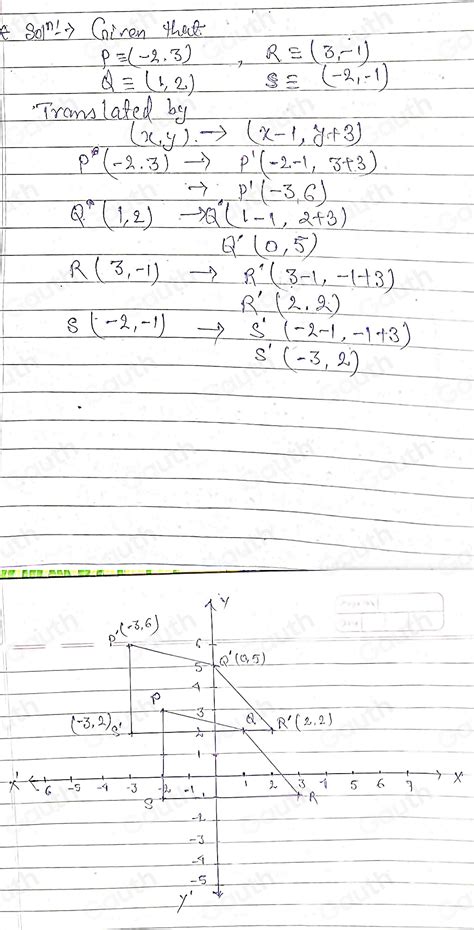 Solⁿ:-> Given that
P≡(-2.3) , R≡(3,-1)
Q≡(1,2) S≡(-2,-1)
Translated by
(x,y) -> (x-1, y+3)
P(-2.3) -> P'(-2-1, 3+3)
-> P'(-3,6)
Q(1,2) -> Q'(1-1, 2+3)
Q'(0,5)
R(3,-1) -> R'(3-1, -1+3)
R'(2.2)
S(-2,-1) -> S'(-2-1, -1+3)
S'(-3,2)
Y
P'(-3,6)
6
Q'(0,5)
5
4
P
3
(-3,2) S'
2
Q
R'(2,2)
1
X' 6 -5 -4 -3 -2 -1 1 2 3 5 6 7 X
S
R
-3
-4
-5
Y'
Gauth